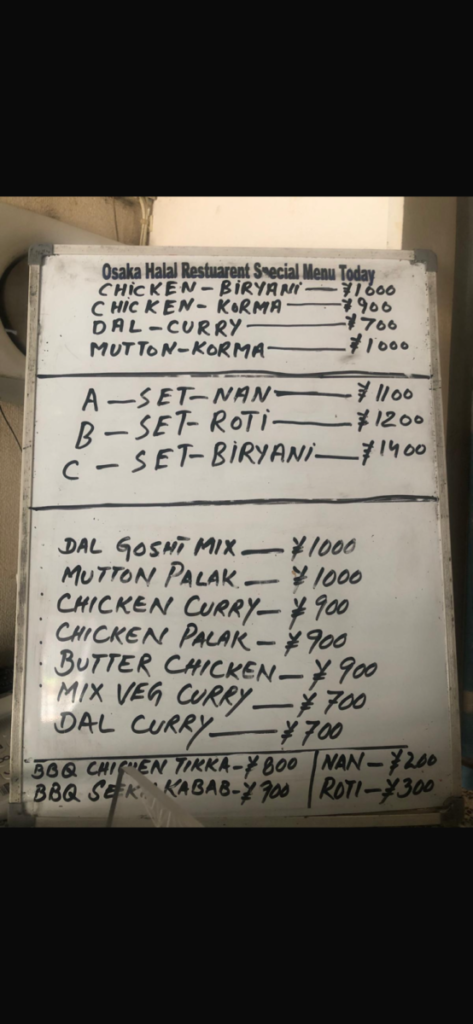 Osaka Halal Restuarent Special Menu Today
CHICKEN - BIRYANI — ¥1000
CHICKEN - KORMA — ¥900
DAL - CURRY — ¥700
MUTTON - KORMA — ¥1000
A — SET - NAN — ¥1100
B — SET - ROTI — ¥1200
C — SET - BIRYANI — ¥1400
DAL GOSHT MIX — ¥1000
MUTTON PALAK — ¥1000
CHICKEN CURRY — ¥900
CHICKEN PALAK — ¥900
BUTTER CHICKEN — ¥900
MIX VEG CURRY — ¥700
DAL CURRY — ¥700
BBQ CHICKEN TIKKA - ¥800 | NAN — ¥200
BBQ SEEKH KABAB - ¥700 | ROTI — ¥300